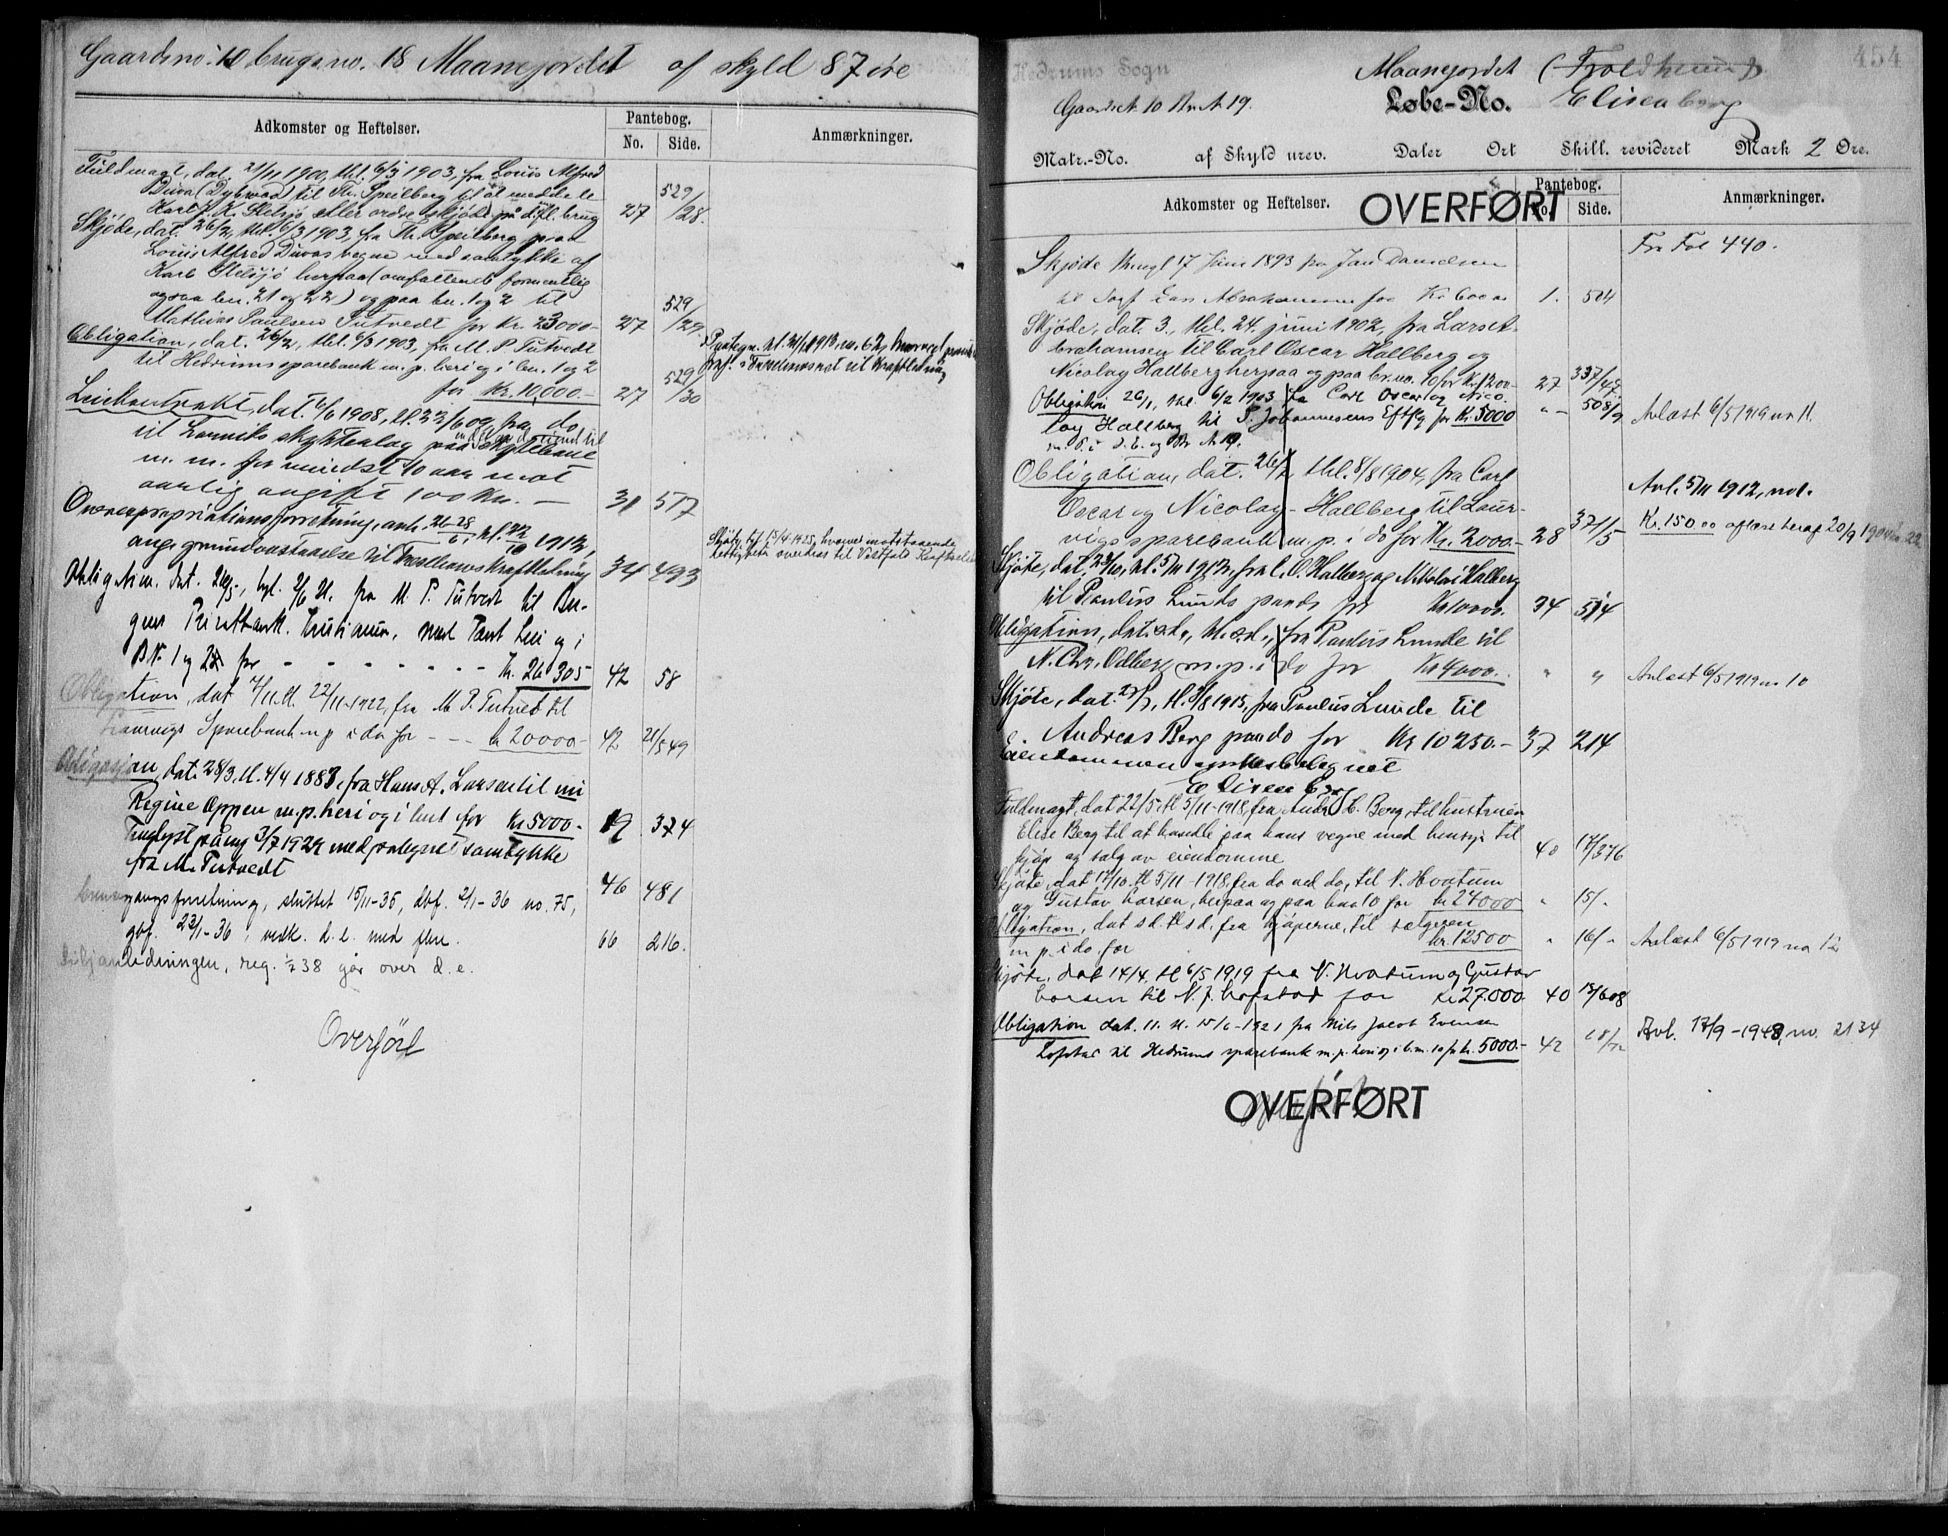 Gaardsno. 10 brugsno. 18 Maanejordet af skyld 87 øre
Adkomster og Heftelser. Pantebog. No. Side. Anmærkninger.
Fuldmagt, dat. 21/11 1900, thl. 6/3 1903, fra Louis Alfred
Duva (Dybwad) til Th. Speilberg til at meddele
Karl J. K. Stelsjø eller ordre skjøde på d. fl. brug 27 529/28.
Skjøde, dat. 26/2, thl. 6/3 1903, fra Th. Speilberg paa
Louis Alfred Duvas vegne med samtykke af
Karl Stelsjø herpaa (omfattende formentlig
ogsaa bn. 21 og 22) og paa bn. 1 og 2 til
Mathias Paulsen Tutvedt for Kr. 23000- 27 529/29.
Obligation, dat. 26/2, thl. 6/3 1903, fra M. P. Tutvedt
til Hedrums sparebank m. p. heri og i bn. 1 og 2
for Kr. 10,000- 27 529/30
Leiekontrakt, dat. 6/6 1908, tl. 22/6 09, fra do
til Laurviks skytterlag
m. m. for mindst 10 aar mot
aarlig avgift 100 Kr. — 31 577
Overexpropriationsforretning, avh. 26-28/6 tl. 22/10 1912,
ang. grundavstaaelse til kraftledning 34 493
Skjøte tgl. 15/4-1925, hvorved motstaaende
rettigheter overdras til Vestfold Kraftselskab
Obligation. dat. 24/5, tgl. 2/6 21. fra M. P. Tutvedt til Ber-
gens Privatbank. Kristiania, med Pant heri og i
B.N. 1 og 22 for - - - - - - - Kr. 26 305 42 58
Obligation, dat 7/11. tl. 22/11-1922, fra M. P. Tutvedt til
Laurvigs Sparebank m p i do for - - - kr 20000- 42 21/549
Obligasjon, dat. 28/3, tl. 4/4 1883, fra Hans A. Larsen til
Regine Oppen m. p. heri og i bnt for Kr 5000- 19 374
Tinglyst påny 3/7 1924 med påtegnet samtykke
fra M. Tutvedt 46 481
gangsforretning, sluttet 15/11-35, dbf. 2/1-36 no. 75,
gbf. 23/1-36, vedk. d. e. med flere. 66 216.
ledningen, reg. 1/7 38 går over d. e.
Overført
454
Hedrums Sogn Maanejordet (Troldhaug)
Gaardsnr. 10 Br. N. 19. Løbe-No. Elisenberg
Matr.-No. af Skyld urev. Daler Ort Skill. revideret Mark 2 Øre.
Adkomster og Heftelser. OVERFØRT Pantebog. No. Side. Anmærkninger.
Fra Fol 440.
Skjøde thingl 17 Juni 1893 fra Jan Danielsen
til Lars Abrahamsen for Kr 600 1. 504
Skjøde, dat. 3., thl. 24. juni 1902, fra Lars A-
brahamsen til Carl Oscar Hallberg og
Nicolay Hallberg herpaa og paa br. no. 10 for Kr. 1200- 27 337/47.
Obligation 26/1, thl. 6/2 1903 fra Carl Oscar og Nico-
lay Hallberg til P. Johannesens Eftflg for Kr. 5000 " - 508/9 Avlæst 6/5 1919 no 11.
m. P. i d. E. og Br. N. 10.
Obligation, dat. 26/7 thl. 8/8 1904, fra Carl Avl. 5/11 1912, no 1.
Oscar og Nicolay Hallberg til Laur-
vigs sparebank m. p. i do for Kr. 2000.- 28 371/5 Kr. 150.00 aflæst heraf 20/9 190
Skjøte, dat. 23/10, tl. 5/11 1912, fra C. O. Halberg og Nikolai Halberg
til Paulus Lunde paa do for Kr 10000. 34 514
Obligation, dat. s. d., tl. s. d., fra Paulus Lunde til
N. Chr. Odberg m. p. i do for Kr 4000. " " Avlæst 6/5 1919 no 10
Skjøte, dat. 29/7, tl. 3/8 1915, fra Paulus Lunde til
Andreas Berg paa do for Kr 10 250.- 37 214
Eiendommen er nu betegnet
Elisenberg
Fuldmagt, dat 22/5 tl 5/11-1918, fra Andr. C. Berg, til hustruen
Elise Berg til at handle paa hans vegne med hensyn til
kjøp og salg av eiendomme 40 14/376
Skjøte, dat 17/10. tl 5/11-1918, fra do ved do, til N. Hvatum
og Gustav Larsen, herpaa og paa bn 10 for kr 24000 " 15/-
Obligation, dat s d. tl s d. fra kjøperne, til sælgeren
m p. i do for kr. 12500 " 16/- Avlæst 6/5 1919 no 12
Skjøte, dat 14/4, tl 6/5 1919 fra N. Hvatum og Gustav
Larsen til N. J. Lofstad for Kr 27.000. 40 15/608
Obligation dat. 11. tl. 15/6-1921 fra Nils Jacob Evensen
Lofstad til Hedrums sparebank m. p. heri og i b. nr. 10 for kr. 5000.- 42 Avl. 17/9-1948, no. 2134
OVERFØRT